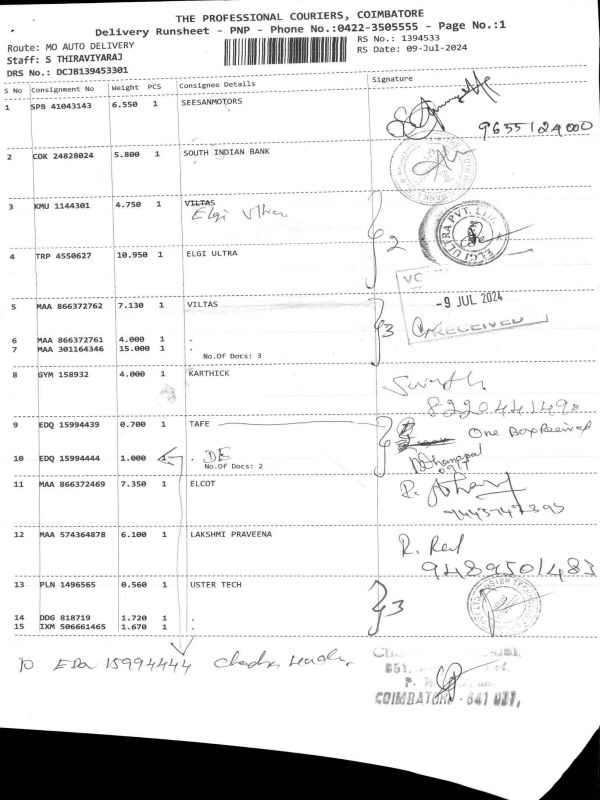 THE PROFESSIONAL COURIERS, COIMBATORE
Delivery Runsheet - PNP - Phone No.:0422-3505555 - Page No.:1
Route: MO AUTO DELIVERY
RS No.: 1394533
Staff: S THIRAVIYARAJ
RS Date: 09-Jul-2024
DRS No.: DCJB139453301
S No Consignment No Weight PCS Consignee Details Signature
1 SPB 41043143 6.550 1 SEESANMOTORS
9655124000
2 COK 24828024 5.800 1 SOUTH INDIAN BANK
3 KMU 1144301 4.750 1 VILTAS
Elgi Ultra
2
ELGI ULTRA PVT. LTD.
4 TRP 4550627 10.950 1 ELGI ULTRA
5 MAA 866372762 7.130 1 VILTAS
- 9 JUL 2024
3
RECEIVED
6 MAA 866372761 4.000 1 .
7 MAA 301164346 15.000 1 .
No.Of Docs: 3
8 GYM 158932 4.000 1 KARTHICK
8220441498
9 EDQ 15994439 0.700 1 TAFE
One Box Received
10 EDQ 15994444 1.000 1 . DE
No.Of Docs: 2
11 MAA 866372469 7.350 1 ELCOT
12 MAA 574364878 6.100 1 LAKSHMI PRAVEENA
9489501483
13 PLN 1496565 0.560 1 USTER TECH
3
14 DDG 818719 1.720 1 .
15 IXM 506661465 1.670 1 .
10 EDQ 15994444
COIMBATORE - 641 021.